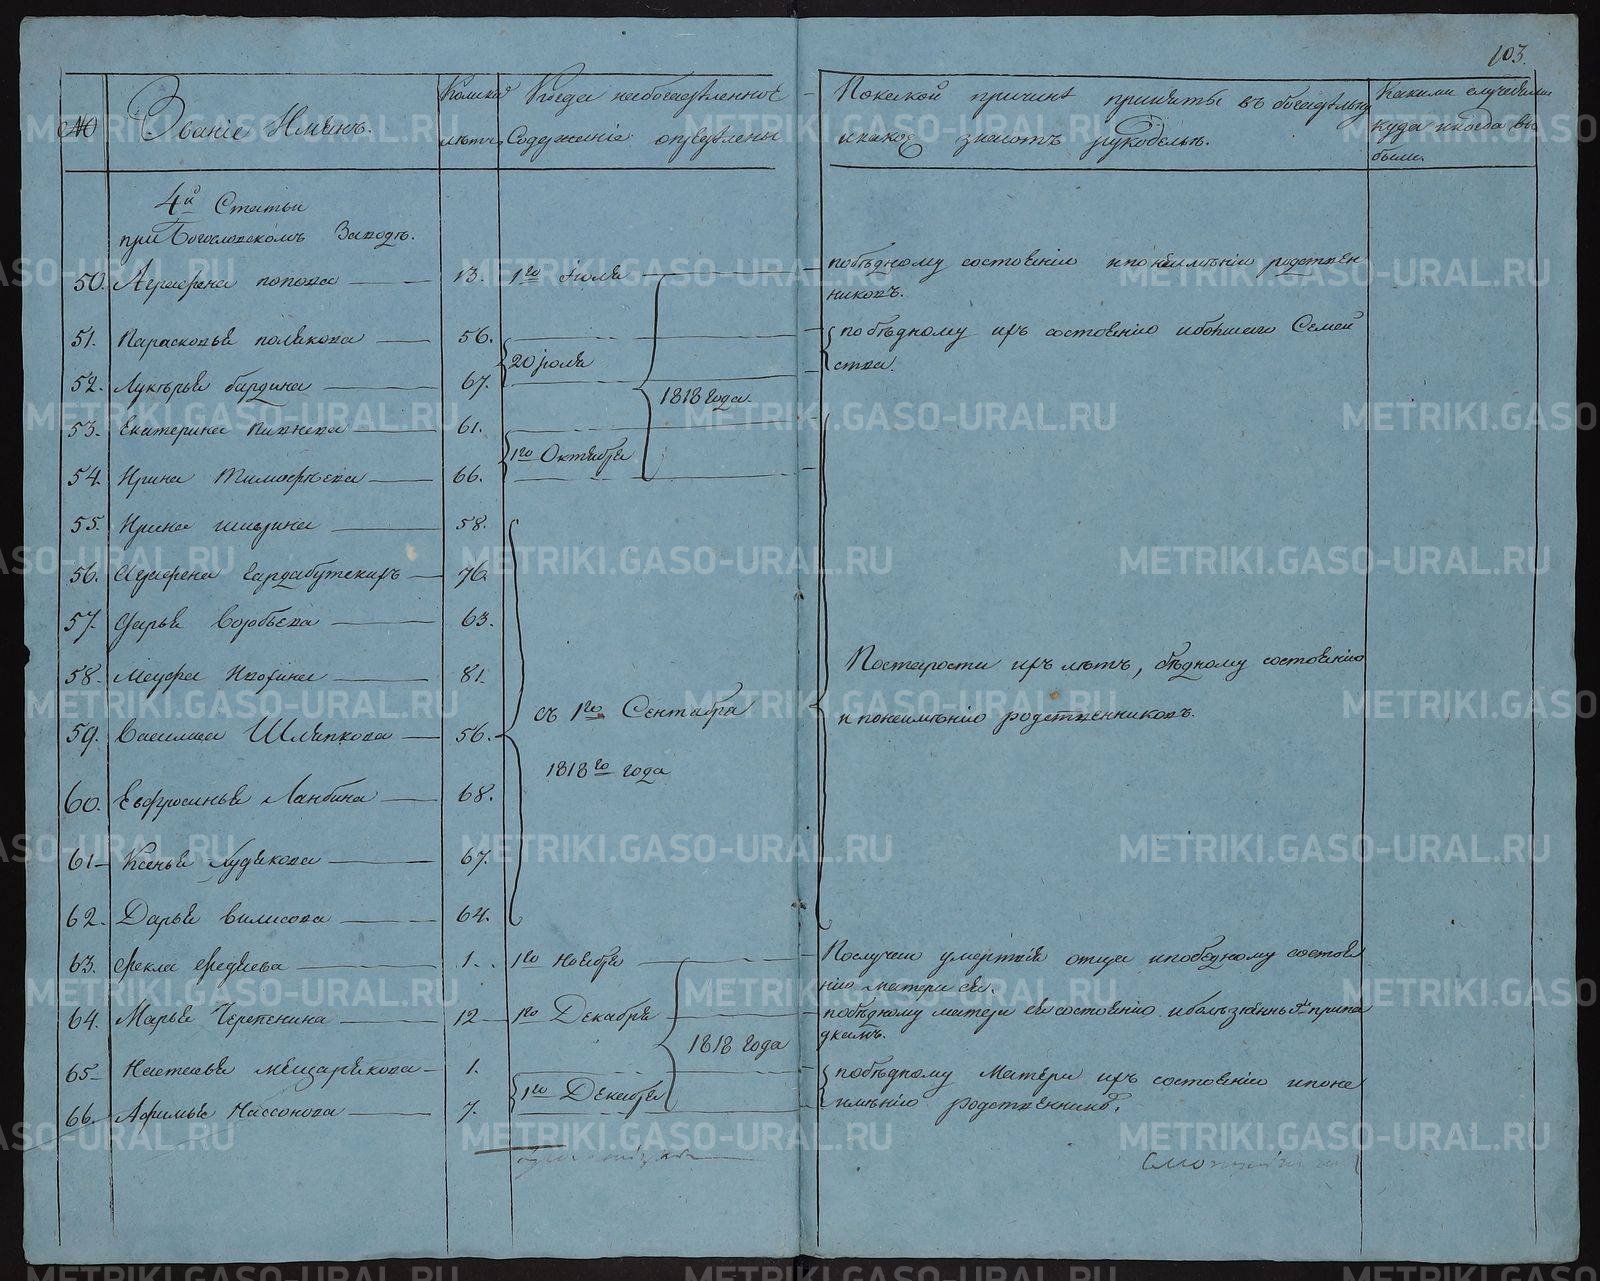 103.
№
Званіе Имянъ.
Коликих
лѣтъ
Когда на богадѣленное
Содержаніе опредѣлены
По какой причинѣ приняты въ богадѣльну
и какое знаютъ рукодѣлье.
Какими случаями
куда и когда вы
были.
4й Статьи
при Богословскомъ Заводѣ.
50. Аграфена попова 13. 1го Июля
по бѣдному состоянію и по неимѣнію родствен
никовъ.
51. Парасковья полякова 56.
по бѣдному ихъ состоянію и большаго Семей
ства.
20 июля
52. Лукерья бардина 67.
1818 года.
53. Екатерина Пихнева 61.
1го Октября
54. Ирина Тимофѣева 66.
55. Ирина шмурина 58.
56. Аграфена Гардабутскихъ 76.
57. Дарья Воробьева 63.
58. Марфа Изогина 81.
По старости ихъ лѣтъ, бѣдному состоянію
и по неимѣнію родственниковъ.
59. Василиса Шляпкова 56.
съ 1го Сентября
1818го года
60. Евфросинья Ланбина 68.
61 Ксенья Худякова 67.
62. Дарья вилисова 64.
63. Фекла Фредиева 1. 1го Ноября
По случаю умертвія отца и по бедному состоя
нію матери ея.
64. Марья Черепенина 12 1го Декабря
по бѣдному матери ея состоянію и болѣзненнымъ припа
дкамъ.
1818 года
65 Настасья мещарякова 1.
по бѣдному Матери ихъ состоянію и по не
имѣнію родственниковъ.
1го Декабря
66. Афимья Нассонова 7.
METRIKI.GASO-URAL.RU